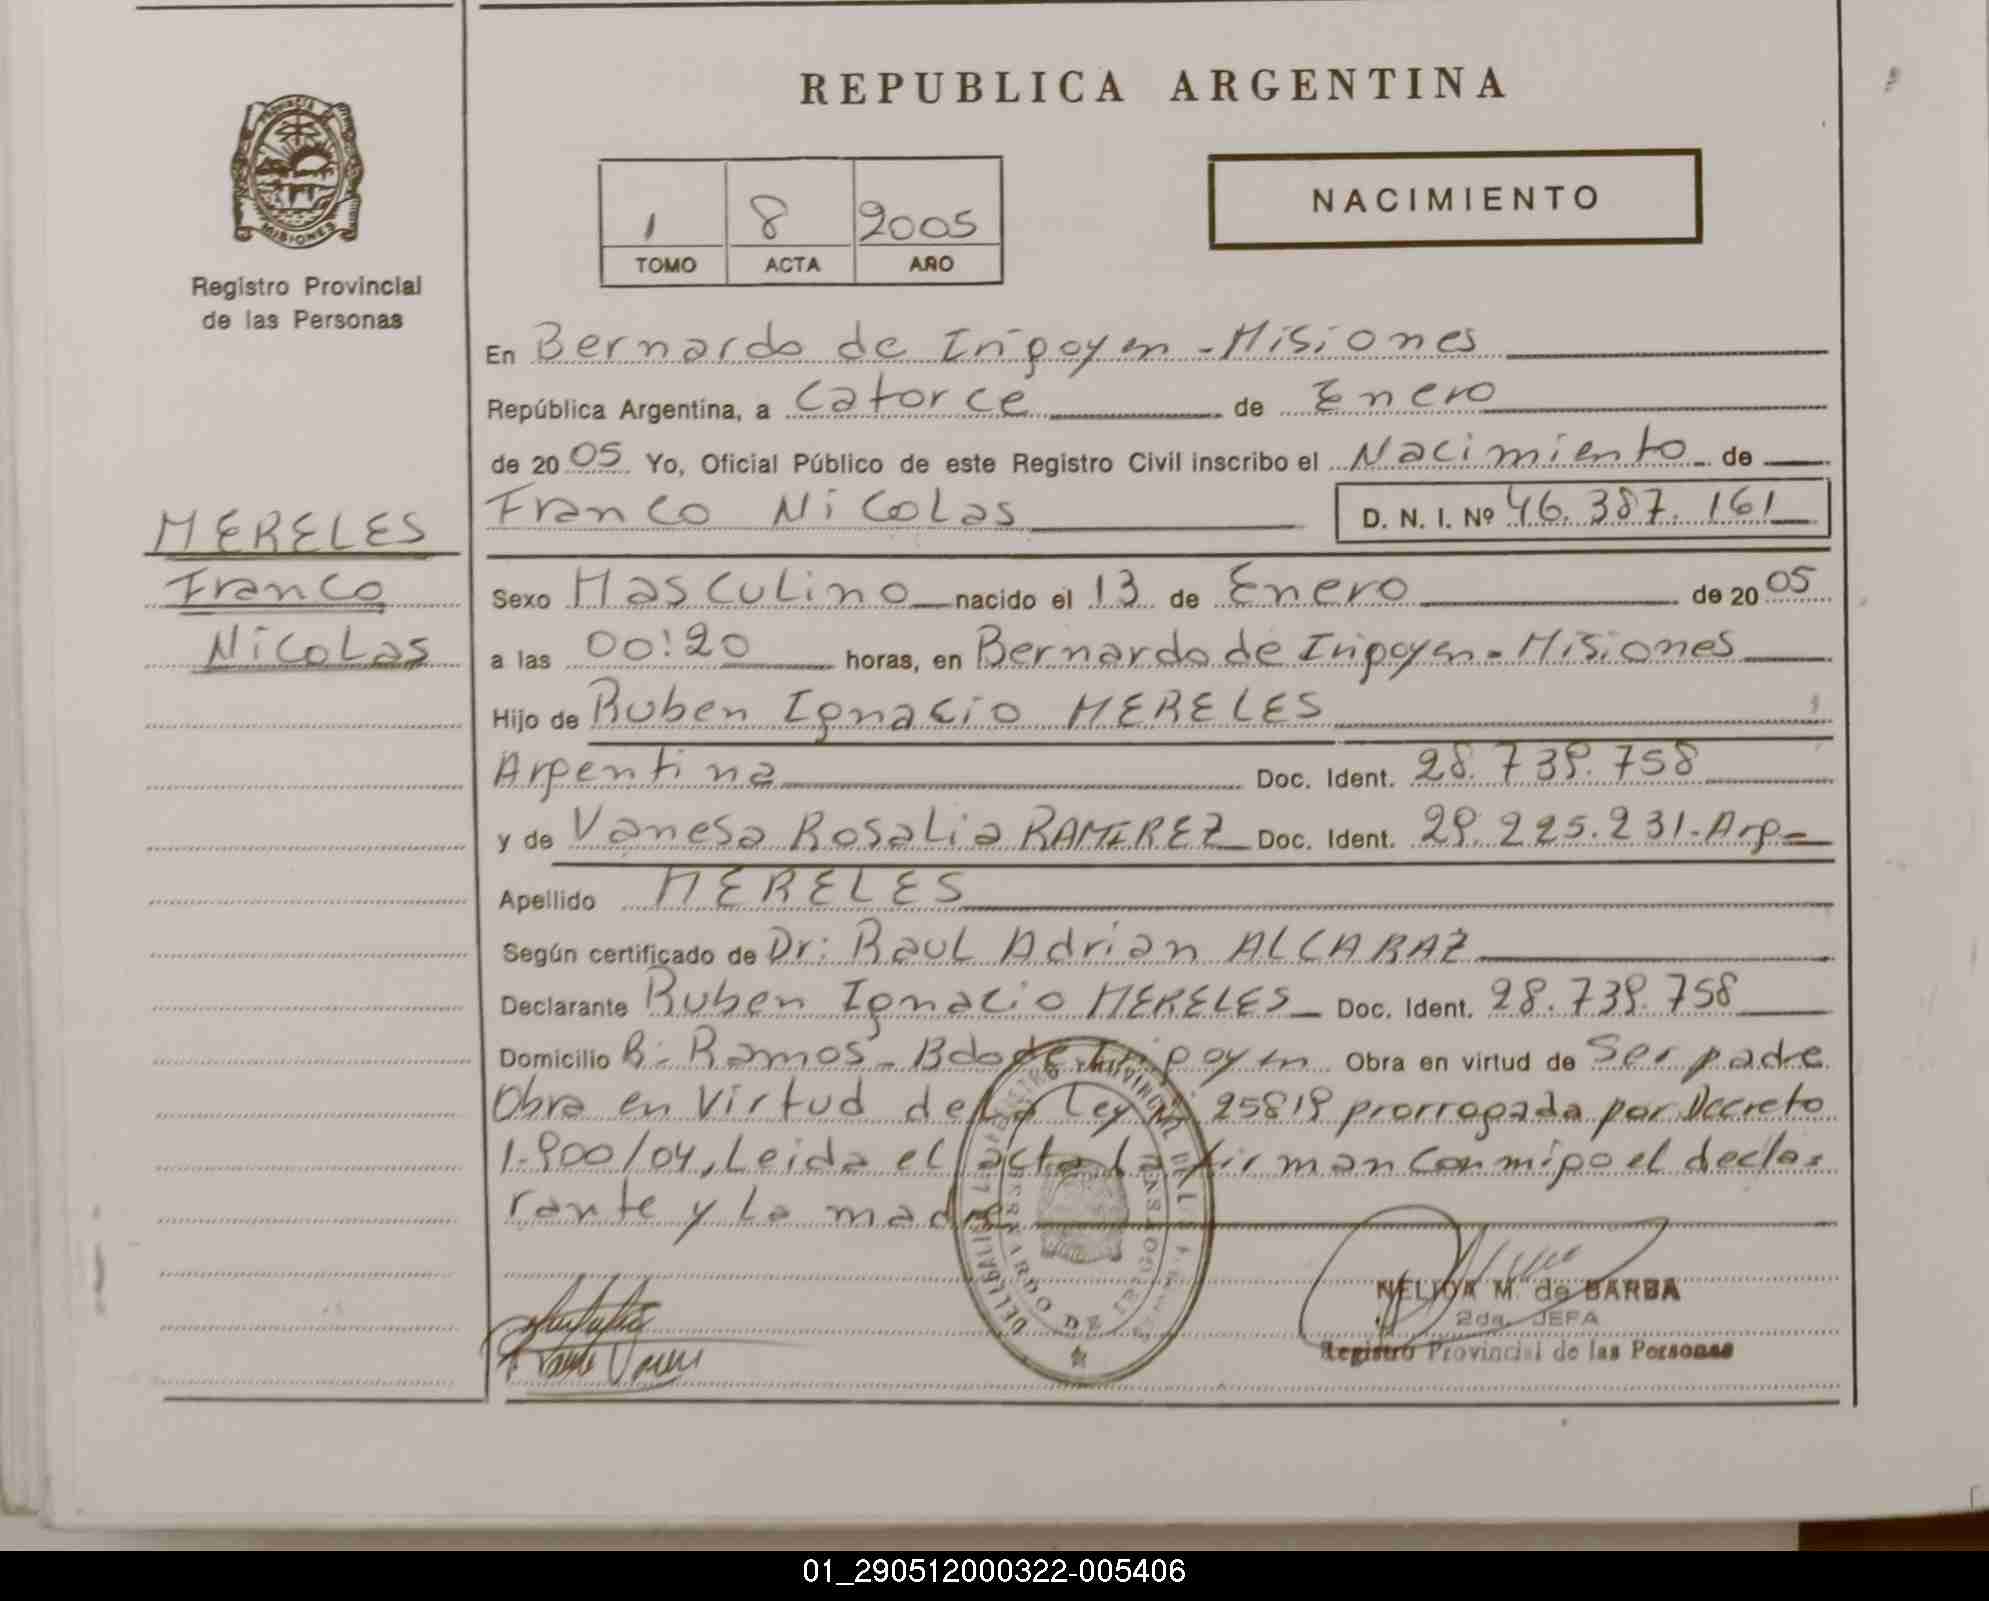 REPUBLICA ARGENTINA
PROVINCIA
MISIONES
Registro Provincial
de las Personas
1 8 2005
TOMO ACTA AÑO
NACIMIENTO
En Bernardo de Irigoyen - Misiones
República Argentina, a catorce de Enero
de 2005 Yo, Oficial Público de este Registro Civil inscribo el Nacimiento de
Franco Nicolas D. N. I. Nº 46.387.161
MERELES
Franco
Nicolas
Sexo Masculino nacido el 13 de Enero de 2005
a las 00:20 horas, en Bernardo de Irigoyen - Misiones
Hijo de Ruben Ignacio MERELES
Argentina Doc. Ident. 28.739.758
y de Vanesa Rosalia RAMIREZ Doc. Ident. 29.225.231-Arg-
Apellido MERELES
Según certificado de Dr: Raul Adrian ALCARAZ
Declarante Ruben Ignacio MERELES Doc. Ident. 28.739.758
Domicilio B: Ramos - Bdo de Irigoyen Obra en virtud de Ser padre
Obra en virtud de la Ley Nº 25819 prorrogada por Decreto
1.900/04, Leida el acta la firman conmigo el decla-
rante y la madre
DELEGACION
BERNARDO DE IRIGOYEN
NELIDA M. de BARBA
2da. JEFA
Registro Provincial de las Personas
01_290512000322-005406